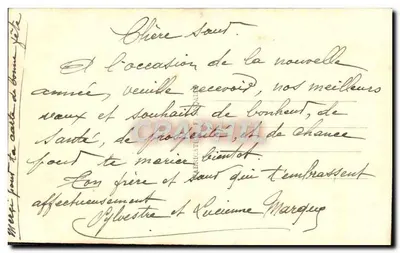 Chère sœur.
A l'occasion de la nouvelle
année, veuille recevoir, nos meilleurs
vœux et souhaits de bonheur, de
santé, de prospérité, et de chance
pour te marier bientot.
Ton frère et sœur qui t'embrassent
affectueusement
Sylvestre et Lucienne
Merci pour ta carte de bonne fête